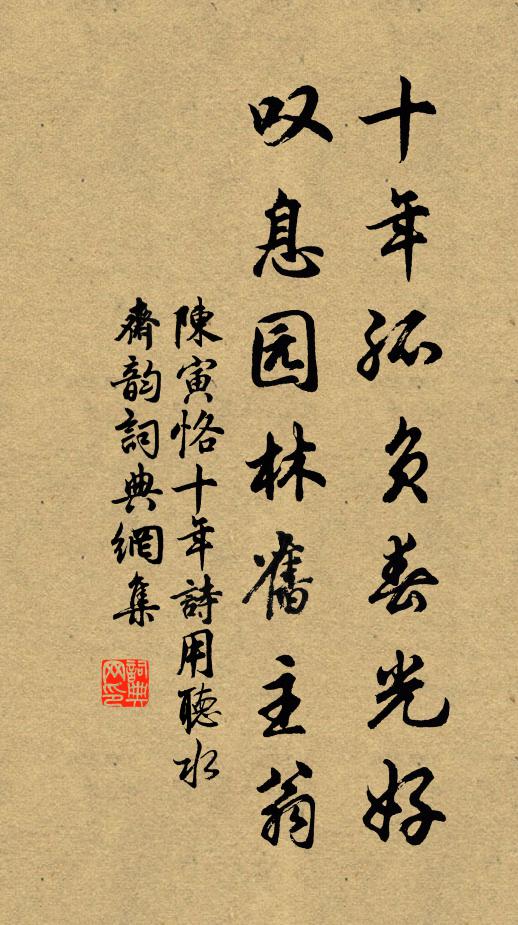 十年孤负春光好
叹息园林舊主翁
陳寅恪十年詩用聽水
齋韵詞典網集
詞典网印